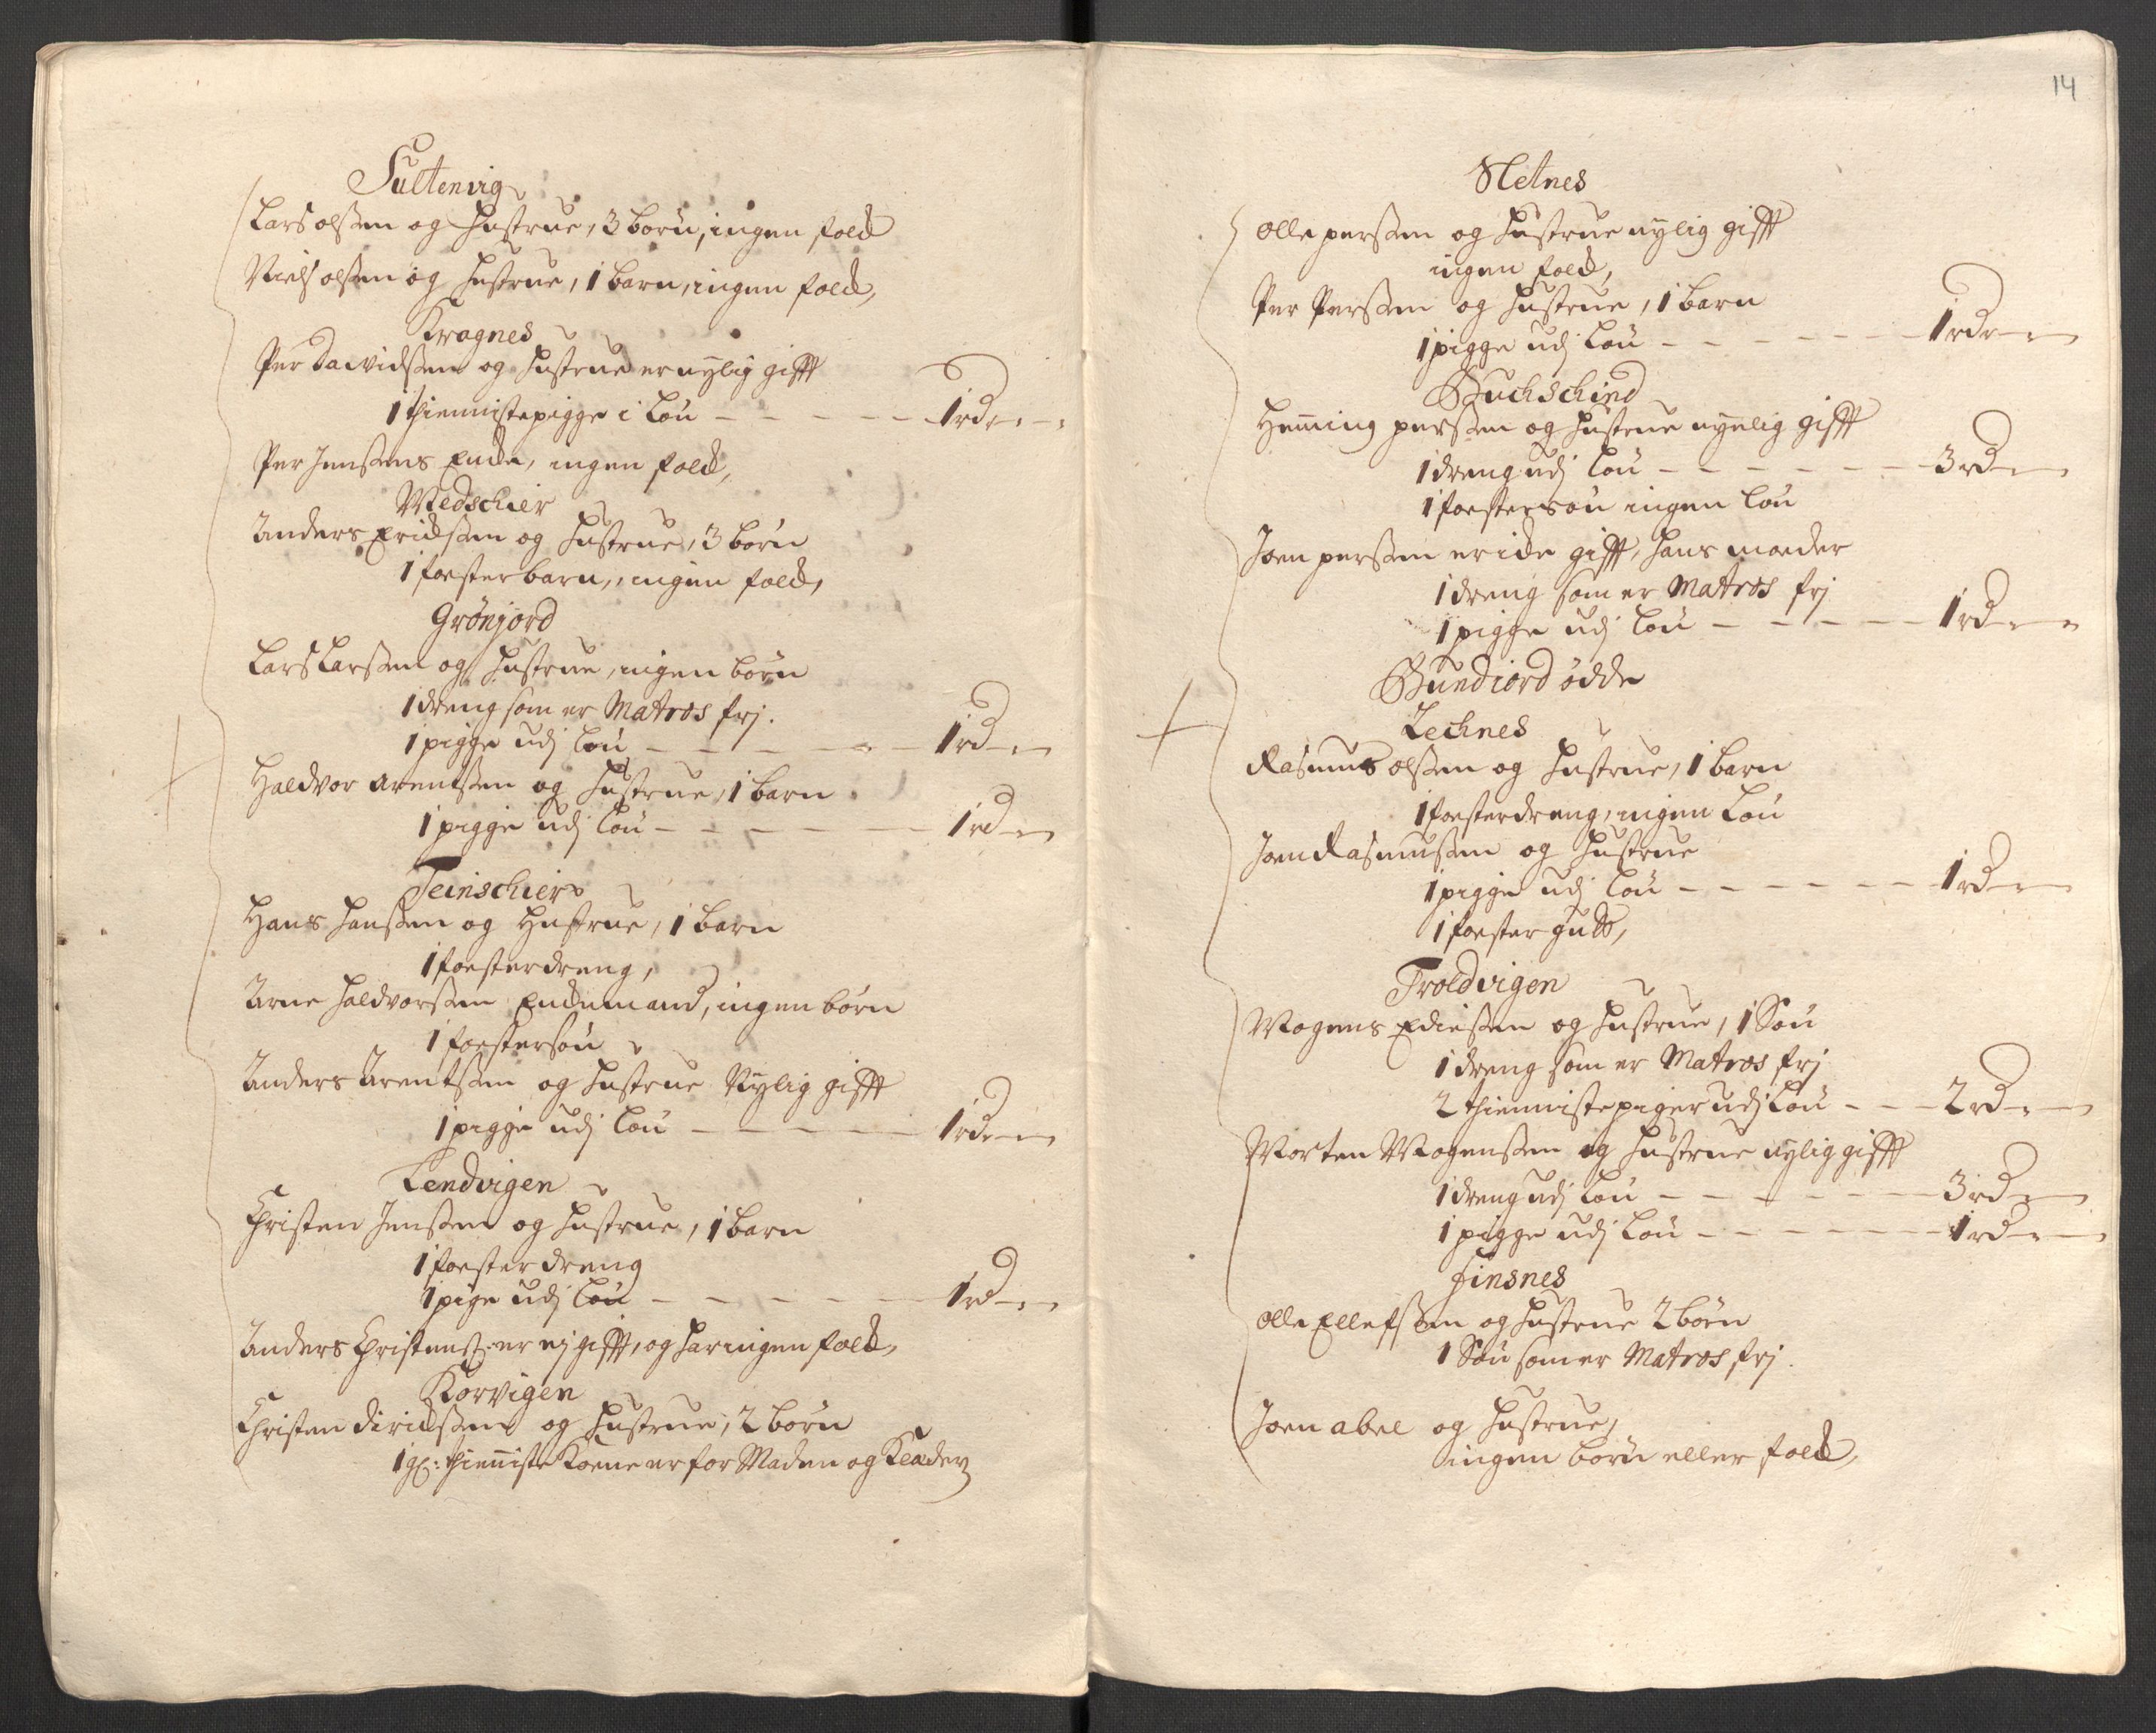 Sultenvig
Lars olsßen og Hustrue, 3 børn, ingen folck
Niels olsßen og Hustrue, 1 barn, ingen folck,
Kragnes
Per Davidsßen og Hustrue er nylig gifft
1 thiennistepigge i Løn - - - - - 1 rd - -
Per Jensßens Encke, ingen folck,
Medschier
Anders Ericksßen og Hustrue, 3 børn
1 foesterbarn, ingen folck,
Grønjord
Lars Larsßen og Hustrue, ingen børn
1 dreng som er Matros frj.
1 pigge udj løn - - - - - 1 rd - -
Haldvor Arentsßen og Hustrue, 1 barn
1 pigge udj løn - - - - - 1 rd - -
Teinschier
Hans Hansßen og Hustrue, 1 barn
1 foesterdreng,
Arne Haldvorsßen Enckemand, ingen børn
1 foestersøn
Anders Arentsßen og Hustrue Nylig gifft
1 pigge udj løn - - - - - 1 rd - -
Lendvigen
Christen Jensßen og Hustrue, 1 barn
1 foester dreng
1 pige udj løn - - - - - 1 rd - -
Anders Christensß er ej gifft, og har ingen folck,
Korvigen
Christen Diricksßen og Hustrue, 2 børn
1 gl: thienniste Koene er for Maden og Klæder
14
Sletnes
Olle persßen og Hustrue nylig gifft
ingen folck,
Per Persßen og Hustrue, 1 barn
1 pigge udj løn - - - - - 1 rdr - -
Buchschind
Heming persßen og Hustrue nyelig gifft
1 dreng udj løn - - - - - 3 rd - -
1 foestersøn ingen løn
Joen persßen er icke gifft, hans moeder
1 dreng som er Matros frj
1 pigge udj løn - - - - - 1 rd - -
Bundiord ødde
Lechnes
Rasmus olsßen og Hustrue, 1 barn
1 foesterdreng, ingen Løn
Joen Rasmusßen og Hustrue
1 pigge udj løn - - - - - 1 rd - -
1 foester gut,
Troldvigen
Mogens Ediesßen og Hustrue, 1 Søn
1 dreng som er Matros frj
2 thiennistepiger udj Løn - - - 2 rd - -
Morten Mogensßen og Hustrue nylig gifft
1 dreng udj løn - - - - - 3 rd - -
1 pigge udj løn - - - - - 1 rd - -
Finsnes
Olle Ellefsßen og Hustrue 2 børn
1 Søn som er Matros frj.
Joen abel og Hustrue,
ingen børn eller folck,